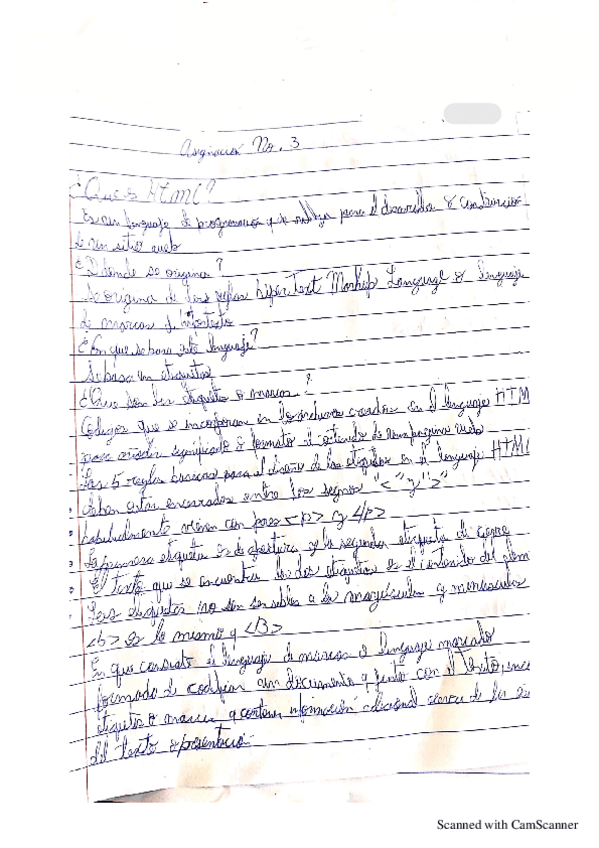 Asignacion No. 3
¿Que es HTML?
Es un lenguaje de programacion y se utiliza para el desarrollo o construccion
de un sitio web
¿Donde se origina?
Se origina de las reglas HiperText Markup Language o lenguaje
de marcas de hipertexto
¿En que se basa este lenguaje?
Se basa en etiquetas
¿Que son las etiquetas o marcas?
Codigos que se incorporan en los archivos creados en el lenguaje HTM
para añadir significado o formato el contenido de una pagina web
Las 5 reglas basicas para el diseño de las etiquetas en el lenguaje HTML
Deben estar encerrados entre los signos "<" y ">"
habitualmente vienen con pares <p> y </p>
La primera etiqueta es de apertura y la segunda etiqueta de cierre
El texto que se encuentra las dos etiquetas es el contenido del elem
Las etiquetas no son sensibles a las mayúsculas y minusculas
<b> es lo mismo q <B>
En que consiste el lenguaje de marcas o lenguaje marcado
formado de codificar un documento q junto con el texto, inco
etiquetas o marcas q contienen información adicional cerca de la es
del texto o presentacion